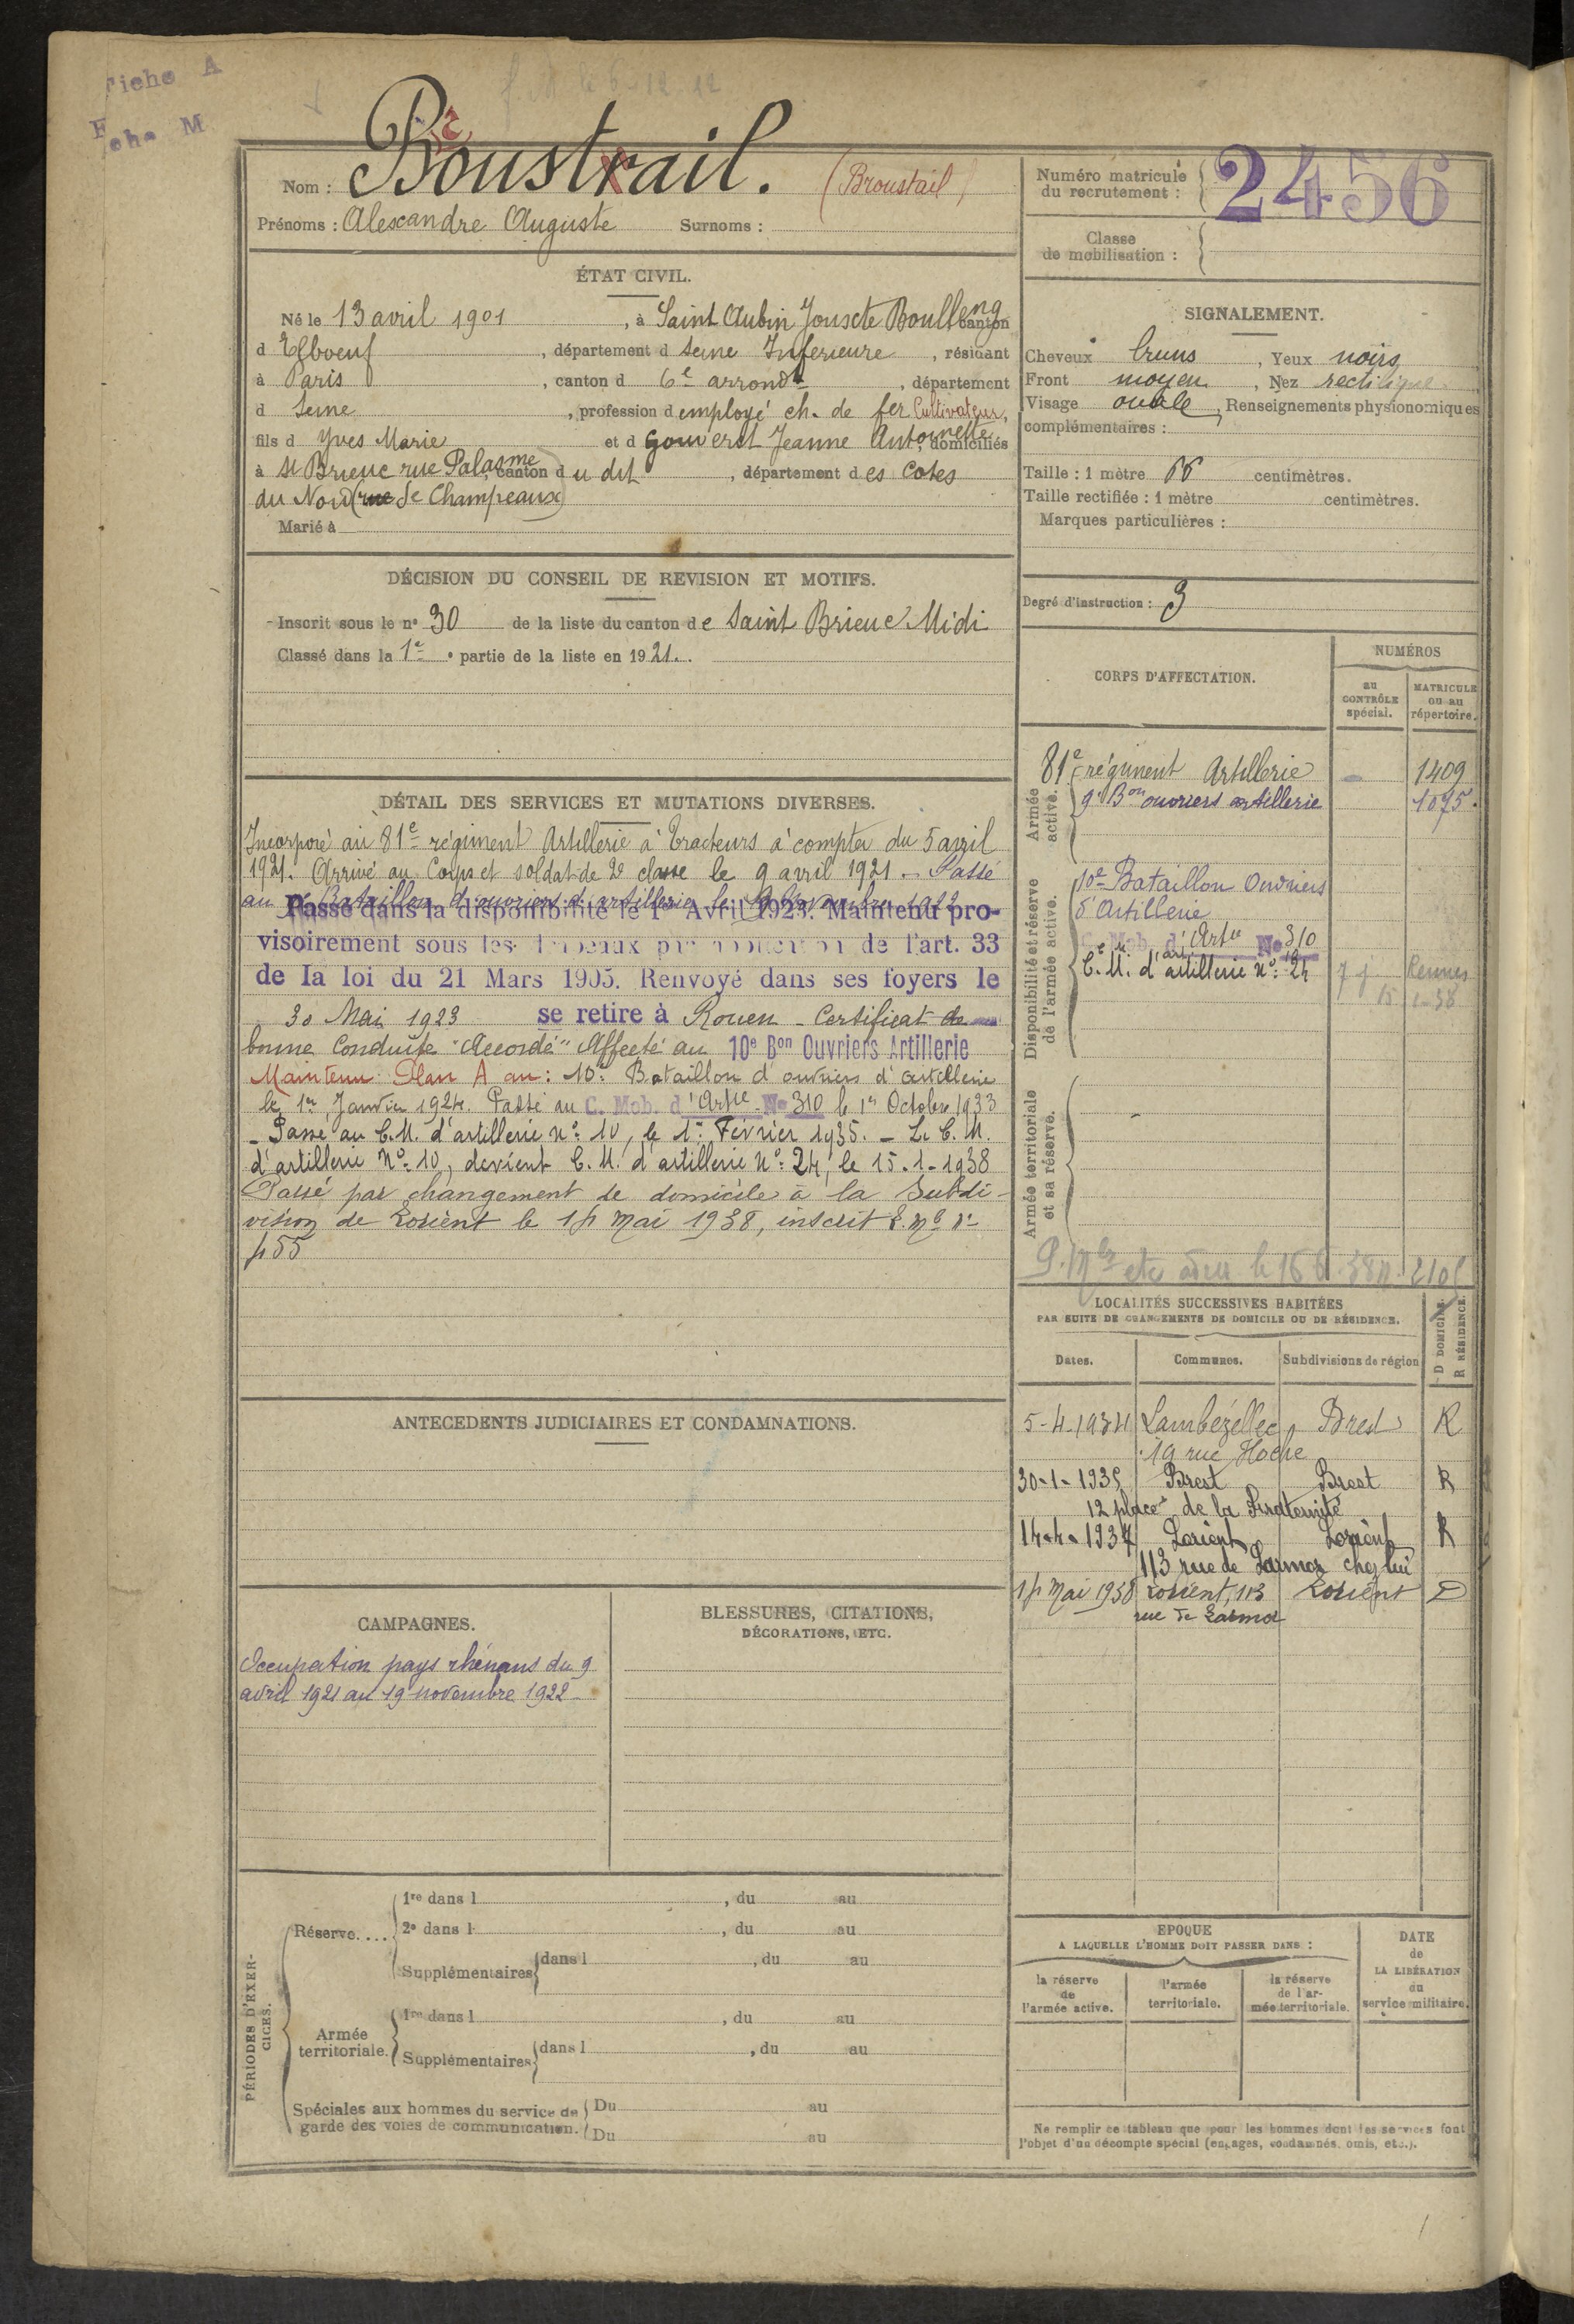 Fiche A
Fiche M
f. M le 6-12-12
Nom : Boustrail. (Broustail)
Prénoms : Alexandre Auguste Surnoms :
Numéro matricule
du recrutement : 2456
Classe
de mobilisation :
ÉTAT CIVIL.
Né le 13 avril 1901, à Saint Aubin Jouxte Boulleng canton
d Elboeuf, département d Seine Inferieure, résidant
à Paris, canton d 6e arrondt, département
d Seine, profession d employé ch. de fer Cultivateur,
fils d Yves Marie et d Gouveret Jeanne Antoinette, domiciliés
à St Brieuc rue Palasme, canton du dit, département des Cotes
du Nord (rue de Champeaux)
Marié à
SIGNALEMENT.
Cheveux bruns, Yeux noirs
Front moyen, Nez rectiligne
Visage ovale, Renseignements physionomiques
complémentaires :
Taille : 1 mètre 66 centimètres.
Taille rectifiée : 1 mètre centimètres.
Marques particulières :
DÉCISION DU CONSEIL DE REVISION ET MOTIFS.
Inscrit sous le no 30 de la liste du canton de Saint Brieuc Midi
Classé dans la 1e partie de la liste en 1921.
Degré d'instruction : 3
CORPS D'AFFECTATION.
NUMÉROS
au
CONTRÔLE
spécial.
MATRICULE
ou au
répertoire.
Armée
active.
81e régiment Artillerie - 1409
9e Bon ouvriers artillerie 1075.
Disponibilité et réserve
de l'armée active.
10e Bataillon Ouvriers
d'Artillerie
C. Mob. d'Artie No 310
C. M. d'artillerie no 24 Rennes
Armée territoriale
et sa réserve.
DÉTAIL DES SERVICES ET MUTATIONS DIVERSES.
Incorporé au 81e régiment Artillerie à Tracteurs à compter du 5 avril
1921. Arrivé au Corps et soldat de 2e classe le 9 avril 1921. - Passé
au 9e Bataillon d'ouvriers d'artillerie le 19 Novembre 1922
Passé dans la disponibilité le 1er Avril 1923. Maintenu pro-
visoirement sous les drapeaux par application de l'art. 33
de la loi du 21 Mars 1905. Renvoyé dans ses foyers le
30 Mai 1923 se retire à Rouen - Certificat de
bonne Conduite "Accordé" Affecté au 10e Bon Ouvriers Artillerie
Maintenu Plan A au : 10e Bataillon d'ouvriers d'artillerie
le 1er Janvier 1924. Passé au C. Mob. d'Artie No 310 le 1er Octobre 1933
- Passé au C.M. d'artillerie no 10, le 1er Février 1935. - Le C.M.
d'artillerie No 10, devient C.M. d'artillerie No 24, le 15-1-1938
Passé par changement de domicile à la Subdi-
vision de Lorient le 14 Mai 1938, inscrit
455
LOCALITÉS SUCCESSIVES HABITÉES
PAR SUITE DE CHANGEMENTS DE DOMICILE OU DE RÉSIDENCE.
D DOMICILE.
R RÉSIDENCE.
Dates. Communes. Subdivisions de région
5-4-1934 Lambézellec Brest R
19 rue Hoche
30-1-1935 Brest Brest R
12 place de la Fraternité
14-4-1937 Lorient Lorient R
113 rue de Larmor chez lui
14 Mai 1938 Lorient, 113 Lorient D
rue de Larmor
ANTECEDENTS JUDICIAIRES ET CONDAMNATIONS.
CAMPAGNES.
Occupation pays rhénans du 9
avril 1921 au 19 novembre 1922
BLESSURES, CITATIONS,
DÉCORATIONS, ETC.
PÉRIODES D'EXER-
CICES.
Réserve....
1re dans l , du au
2e dans l , du au
Supplémentaires dans l , du au
Armée
territoriale.
1re dans l , du au
Supplémentaires dans l , du au
Spéciales aux hommes du service de
garde des voies de communication.
Du au
Du au
EPOQUE
A LAQUELLE L'HOMME DOIT PASSER DANS :
la réserve
de
l'armée active.
l'armée
territoriale.
la réserve
de l'ar-
mée territoriale.
DATE
de
LA LIBÉRATION
du
service militaire.
Ne remplir ce tableau que pour les hommes dont les services font
l'objet d'un décompte spécial (engagés, condamnés, omis, etc.).